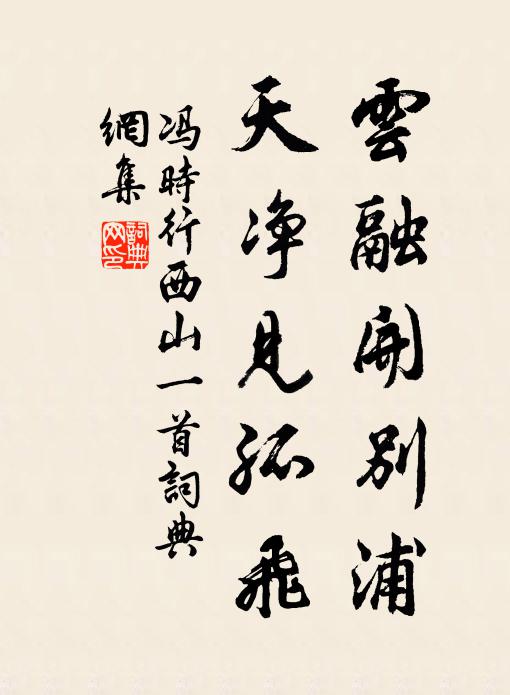 雲融開別浦
天净見孤飛
冯時行西山一首詞典
網集
詞典网印